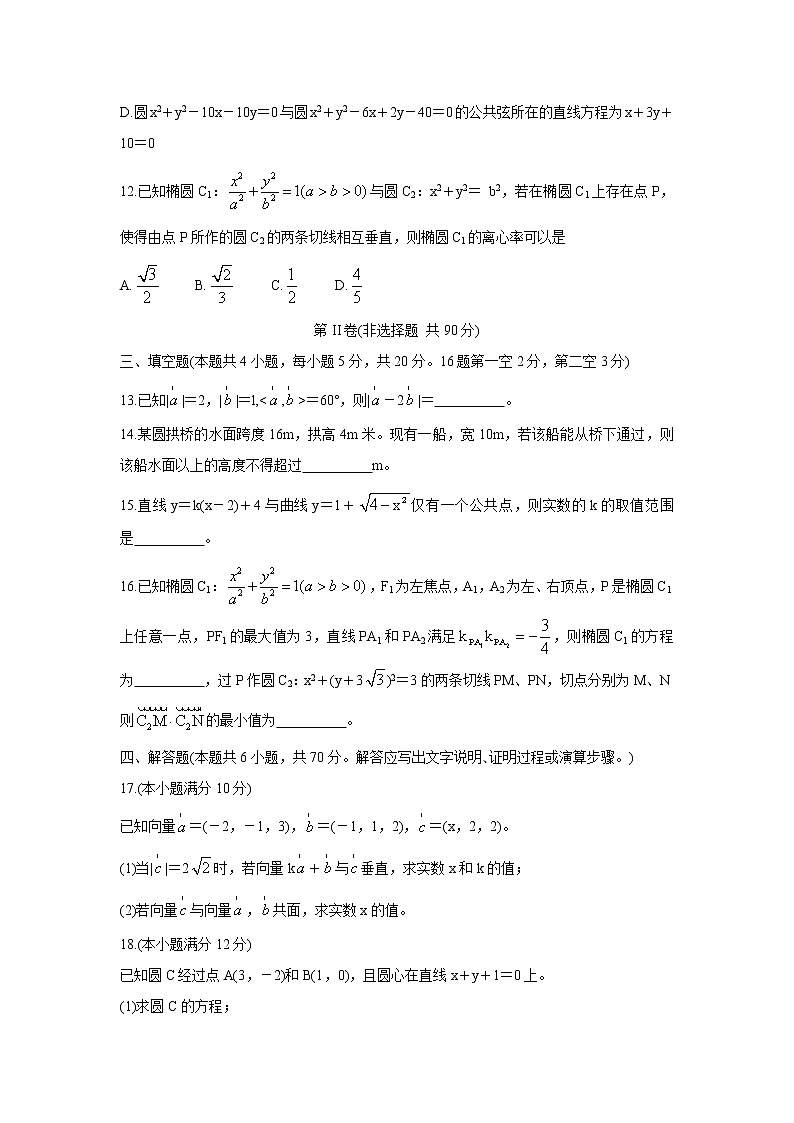 D.圆x²+y²-10x-10y=0与圆x²+y²-6x+2y-40=0的公共弦所在的直线方程为x+3y+
10=0
12.已知椭圆C₁:x²/a²+y²/b²=1(a>b>0)与圆C₂:x²+y²= b²,若在椭圆C₁上存在点P,
使得由点P所作的圆C₂的两条切线相互垂直,则椭圆C₁的离心率可以是
A.√3/2 B.√2/3 C.1/2 D.4/5
第II卷(非选择题 共90分)
三、填空题(本题共4小题,每小题5分,共20分。16题第一空2分,第二空3分)
13.已知|a|=2,|b|=1,<a,b>=60°,则|a-2b|=__________。
14.某圆拱桥的水面跨度16m,拱高4m米。现有一船,宽10m,若该船能从桥下通过,则
该船水面以上的高度不得超过__________m。
15.直线y=k(x-2)+4与曲线y=1+√(4-x²)仅有一个公共点,则实数的k的取值范围
是__________。
16.已知椭圆C₁:x²/a²+y²/b²=1(a>b>0),F₁为左焦点,A₁,A₂为左、右顶点,P是椭圆C₁
上任意一点,PF₁的最大值为3,直线PA₁和PA₂满足k_PA₁k_PA₂=-3/4,则椭圆C₁的方程
为__________,过P作圆C₂:x²+(y+3√3)²=3的两条切线PM、PN,切点分别为M、N
则C₂M·C₂N的最小值为__________。
四、解答题(本题共6小题,共70分。解答应写出文字说明、证明过程或演算步骤。)
17.(本小题满分10分)
已知向量a=(-2,-1,3),b=(-1,1,2),c=(x,2,2)。
(1)当|c|=2√2时,若向量ka+b与c垂直,求实数x和k的值;
(2)若向量c与向量a,b共面,求实数x的值。
18.(本小题满分12分)
已知圆C经过点A(3,-2)和B(1,0),且圆心在直线x+y+1=0上。
(1)求圆C的方程;